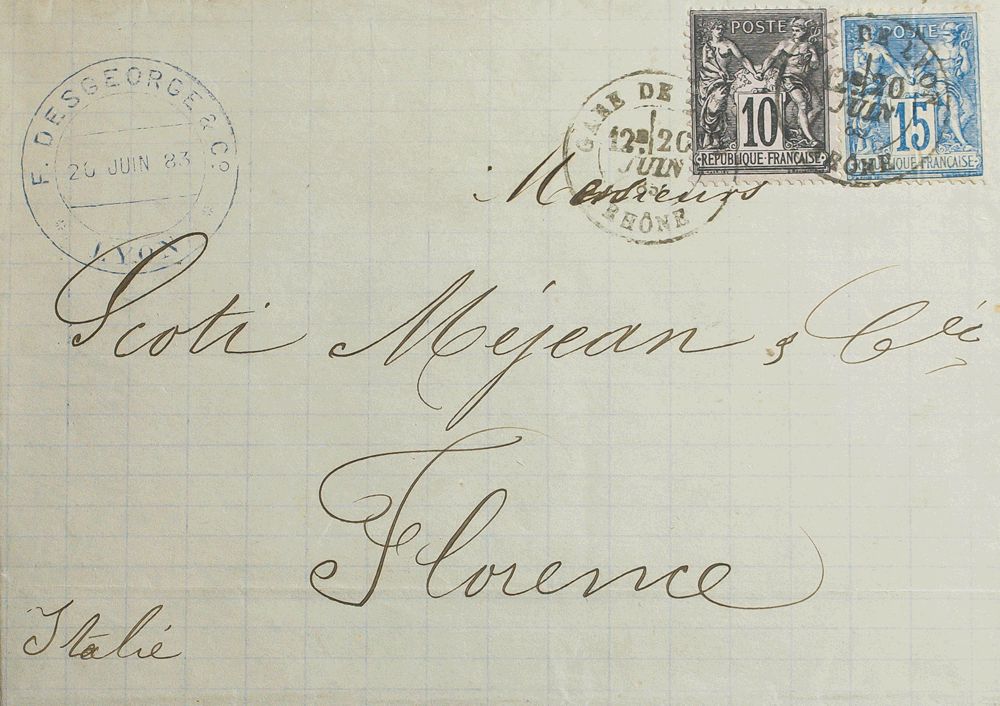 F. DESGEORGE & Cº
20 JUIN 83
LYON
GARE DE
12ᴱ 20
JUIN
RHÔNE
POSTE
10
REPUBLIQUE FRANÇAISE
POSTE
15
IQUE FRANÇAISE
DE LYON
20
JUIN
RHÔNE
Messieurs
Scoti Méjean & Cie
Florence
Italie